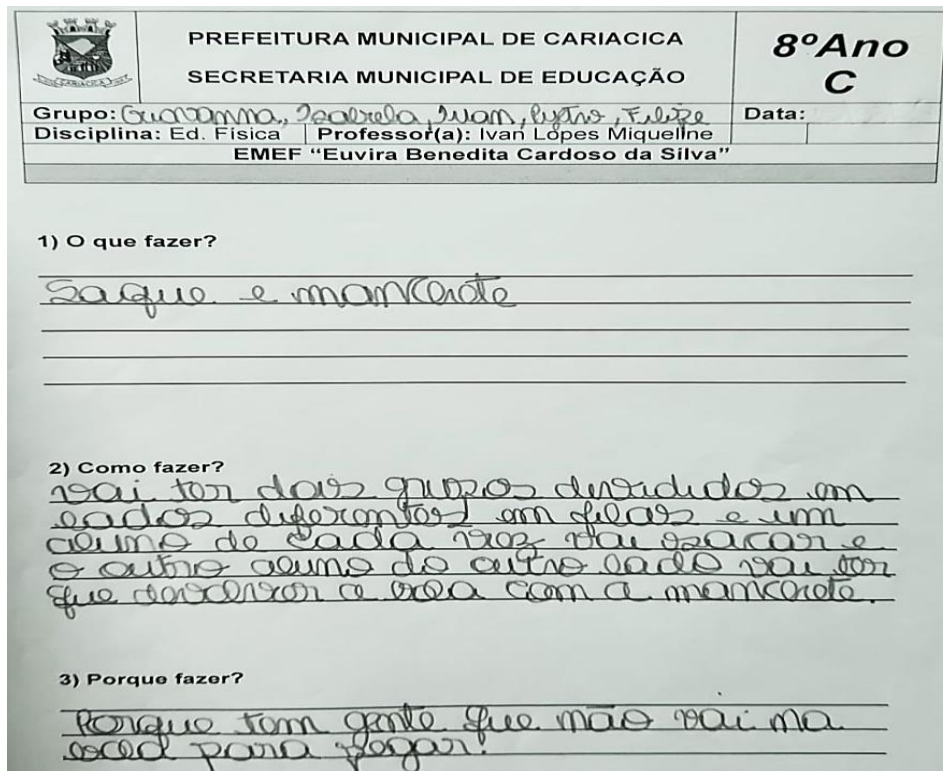 CARIACICA
PREFEITURA MUNICIPAL DE CARIACICA
SECRETARIA MUNICIPAL DE EDUCAÇÃO
8ºAno
C
Grupo: Giovanna, Isabela, Luan, Filipe
Data:
Disciplina: Ed. Física Professor(a): Ivan Lopes Miqueline
EMEF “Euvira Benedita Cardoso da Silva”
1) O que fazer?
Saque e manchete
2) Como fazer?
vai ter dois grupos devididos em
lados diferentes em filas e um
aluno de cada vez vai sacar e
o outro aluno do outro lado vai ter
que devolver a bola com a manchete.
3) Porque fazer?
Porque tem gente que não vai na
bola para pegar!